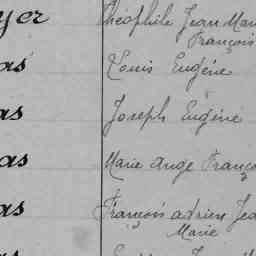 yer Théophile Jean Mari
François
as Louis Eugène
as Joseph Eugène
as Marie Ange Franço
as François adrien Jea
Marie
as